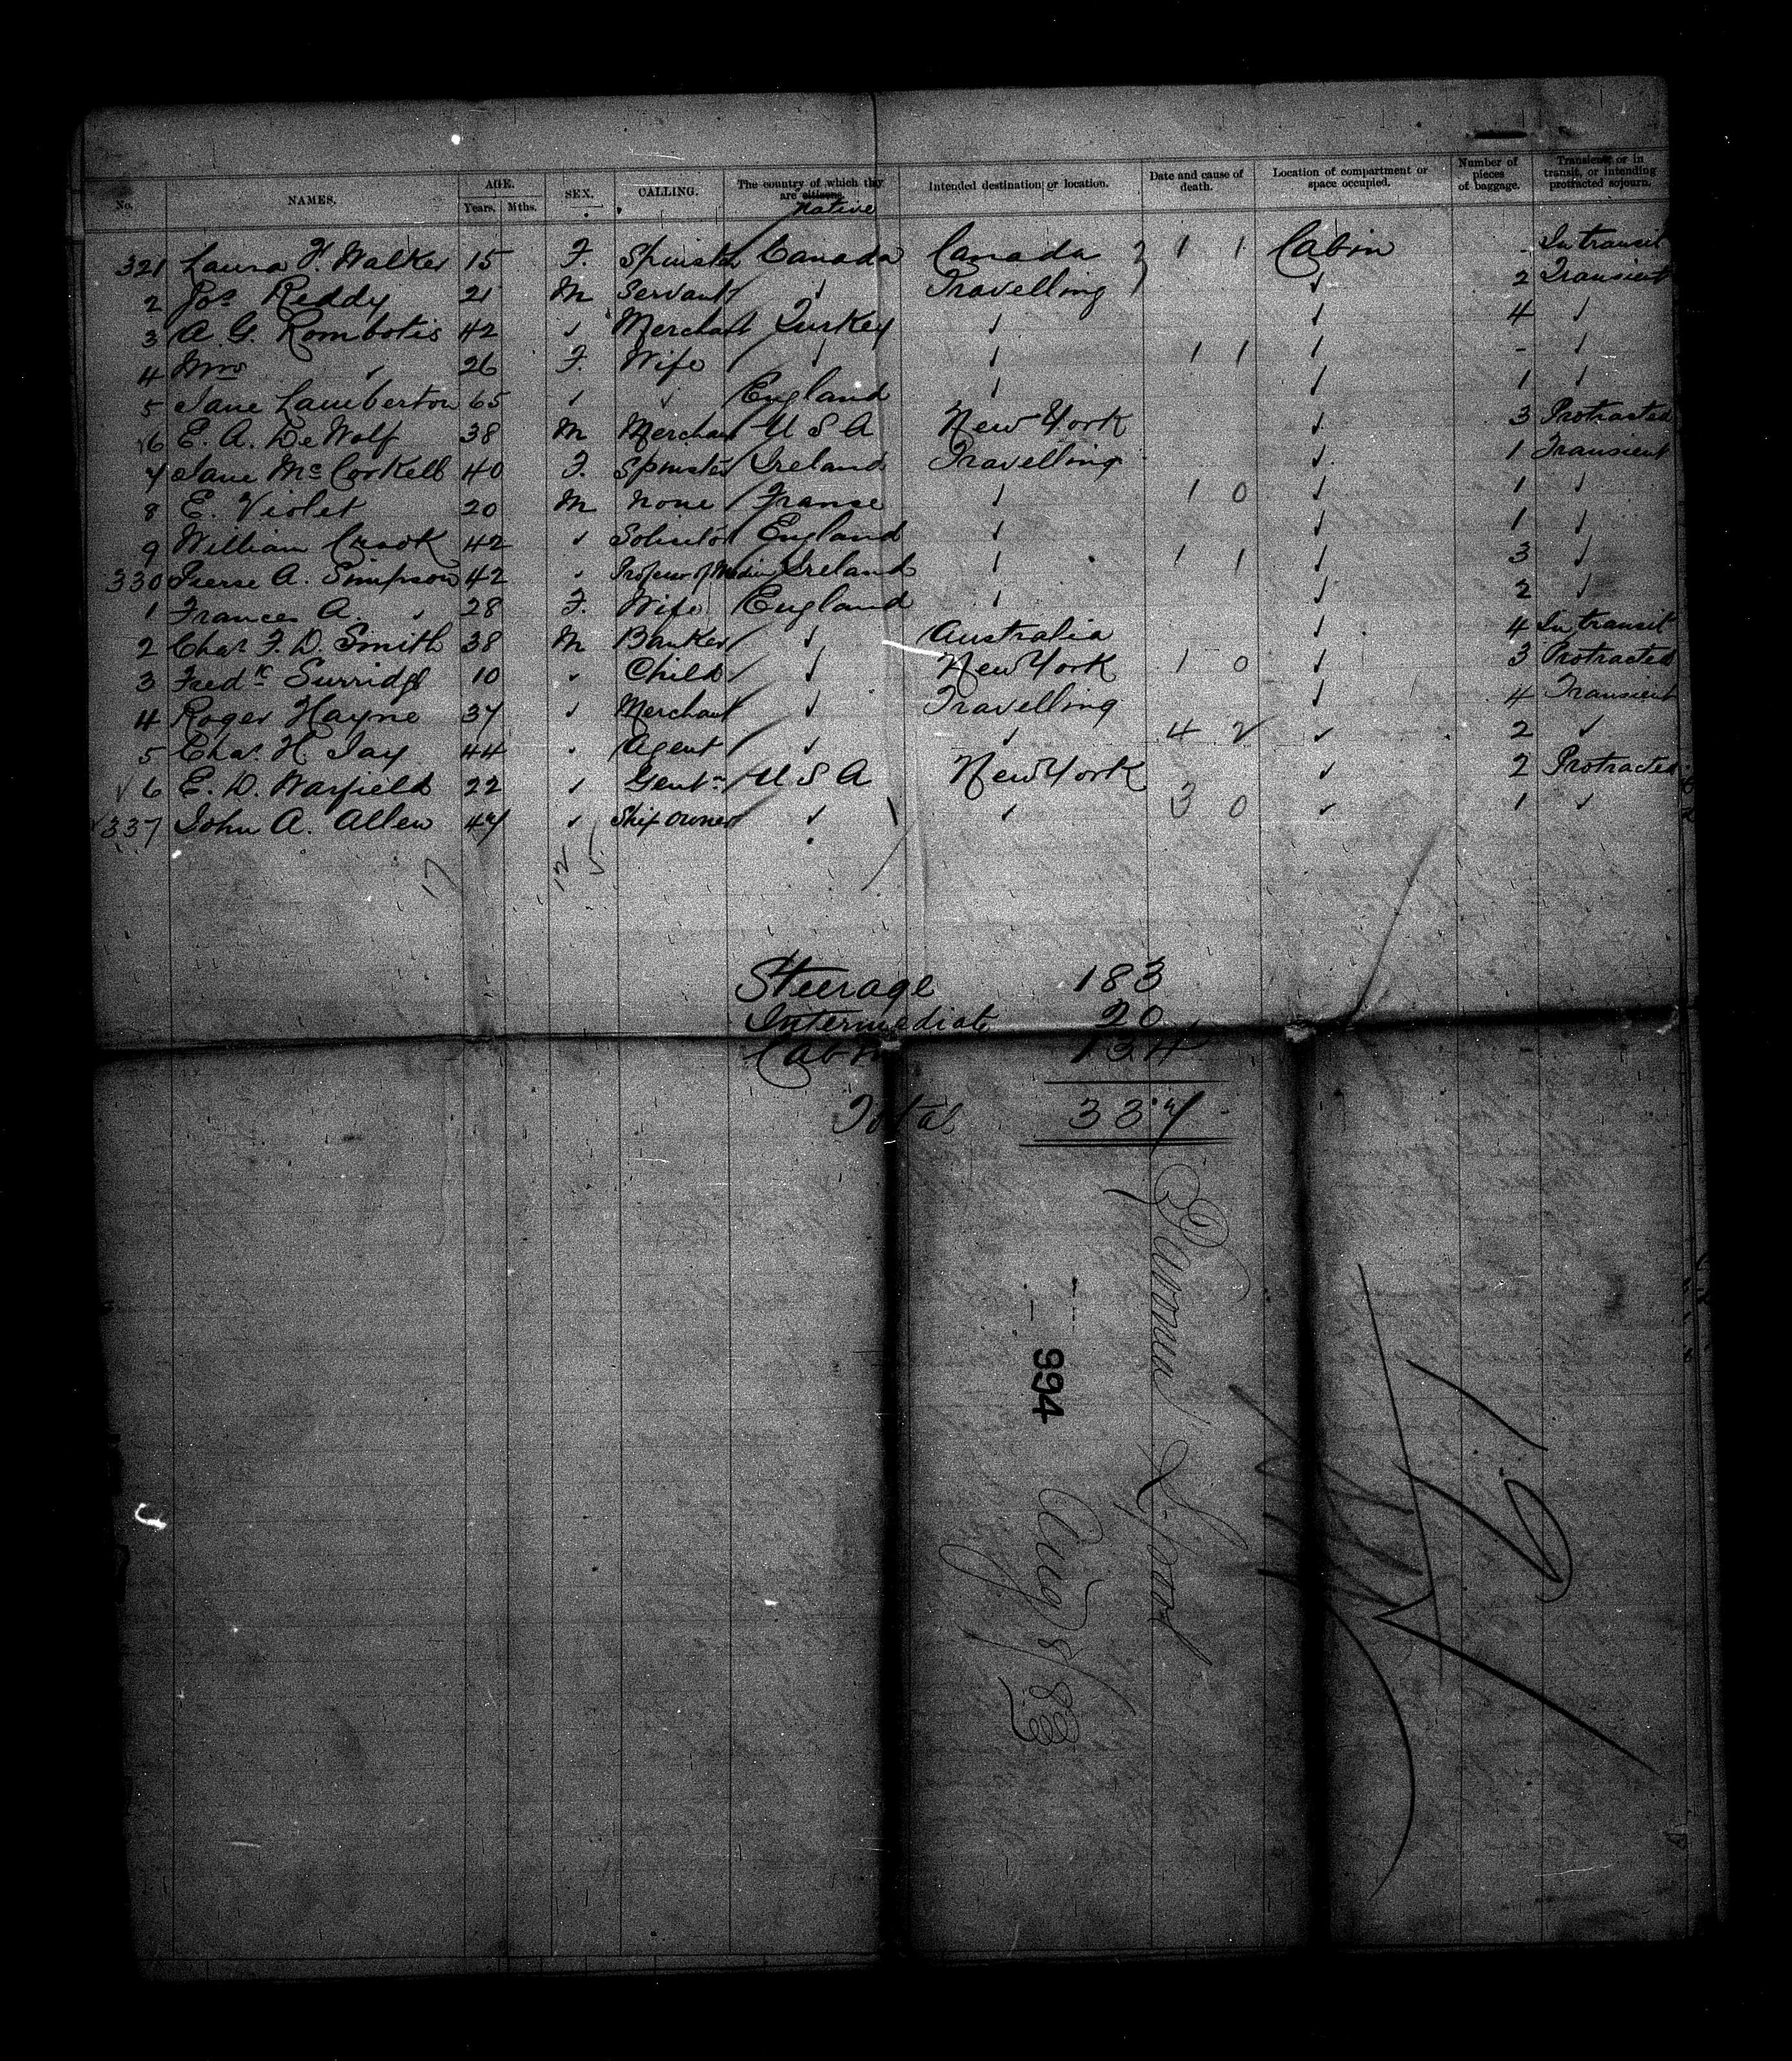 No. NAMES. AGE. Years. Mths. SEX. CALLING. The country of which they are citizens. native Intended destination or location. Date and cause of death. Location of compartment or space occupied. Number of pieces of baggage. Transient or in transit, or intending protracted sojourn.
321 Laura F. Walker 15 F. Spinster Canada Canada 1 1 Cabin - In transit
2 Jos Reddy 21 M Servant ✓ Travelling ✓ 2 Transient
3 A. G. Rombotis 42 ✓ Merchant Turkey ✓ ✓ 4 ✓
4 Mrs ✓ 26 F. Wife ✓ ✓ 1 1 ✓ - ✓
5 Jane Lamberton 65 ✓ ✓ England ✓ ✓ 1 ✓
6 E. A. De Wolf 38 M Merchant U S A New York ✓ 3 Protracted
7 Jane Mc Corkell 40 F. Spinster Ireland Travelling ✓ 1 Transient
8 E. Violet 20 M none France ✓ 1 0 ✓ 1 ✓
9 William Crook 42 ✓ Solicitor England ✓ ✓ 1 ✓
330 Pierse A. Simpson 42 ✓ Professor of Medicine Ireland ✓ 1 1 ✓ 3 ✓
1 Frances A. ✓ 28 F. Wife England ✓ ✓ 2 ✓
2 Chas F. D. Smith 38 M Banker ✓ Australia ✓ 4 In transit
3 Fredk Surridge 10 ✓ Child ✓ New York 1 0 ✓ 3 Protracted
4 Roger Hayne 37 ✓ Merchant ✓ Travelling ✓ 4 Transient
5 Chas. H. Jay 44 ✓ Agent ✓ ✓ 4 2 ✓ 2 ✓
6 E. D. Warfield 22 ✓ Gentn U S A New York ✓ 2 Protracted
337 John A. Allen 47 ✓ Ship owner ✓ ✓ 3 0 ✓ 1 ✓
17 12 5
Steerage 183
Intermediate 20
Cabin 134
Total 337
Servia L'pool
994
Aug 8/83